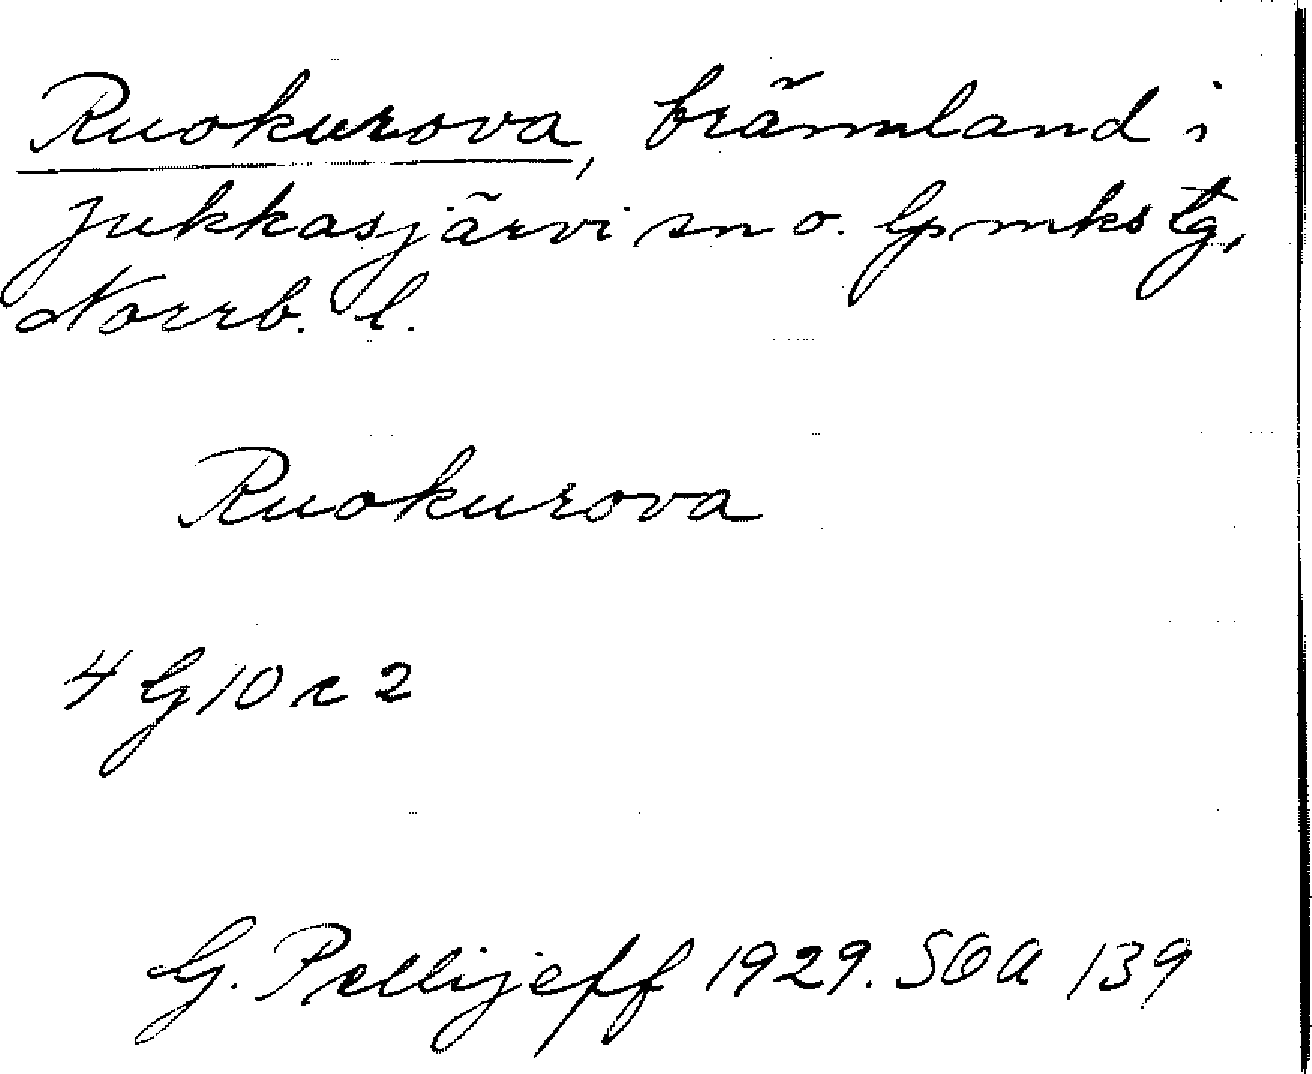 Ruokurova, brännland i
Jukkasjärvi sn o. lpmks tg,
Norrb. l.
Ruokurova
4 G 10 c 2
G. Pellijeff 1929. SOA 139